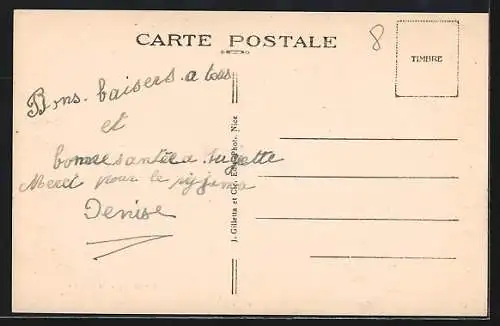 CARTE POSTALE
8
TIMBRE
Bons baisers a tous
et
bonne santée a Sugette
Merci pour le pyjama
Denise
J. Gilletta et Cie, Edit. Phot. Nice